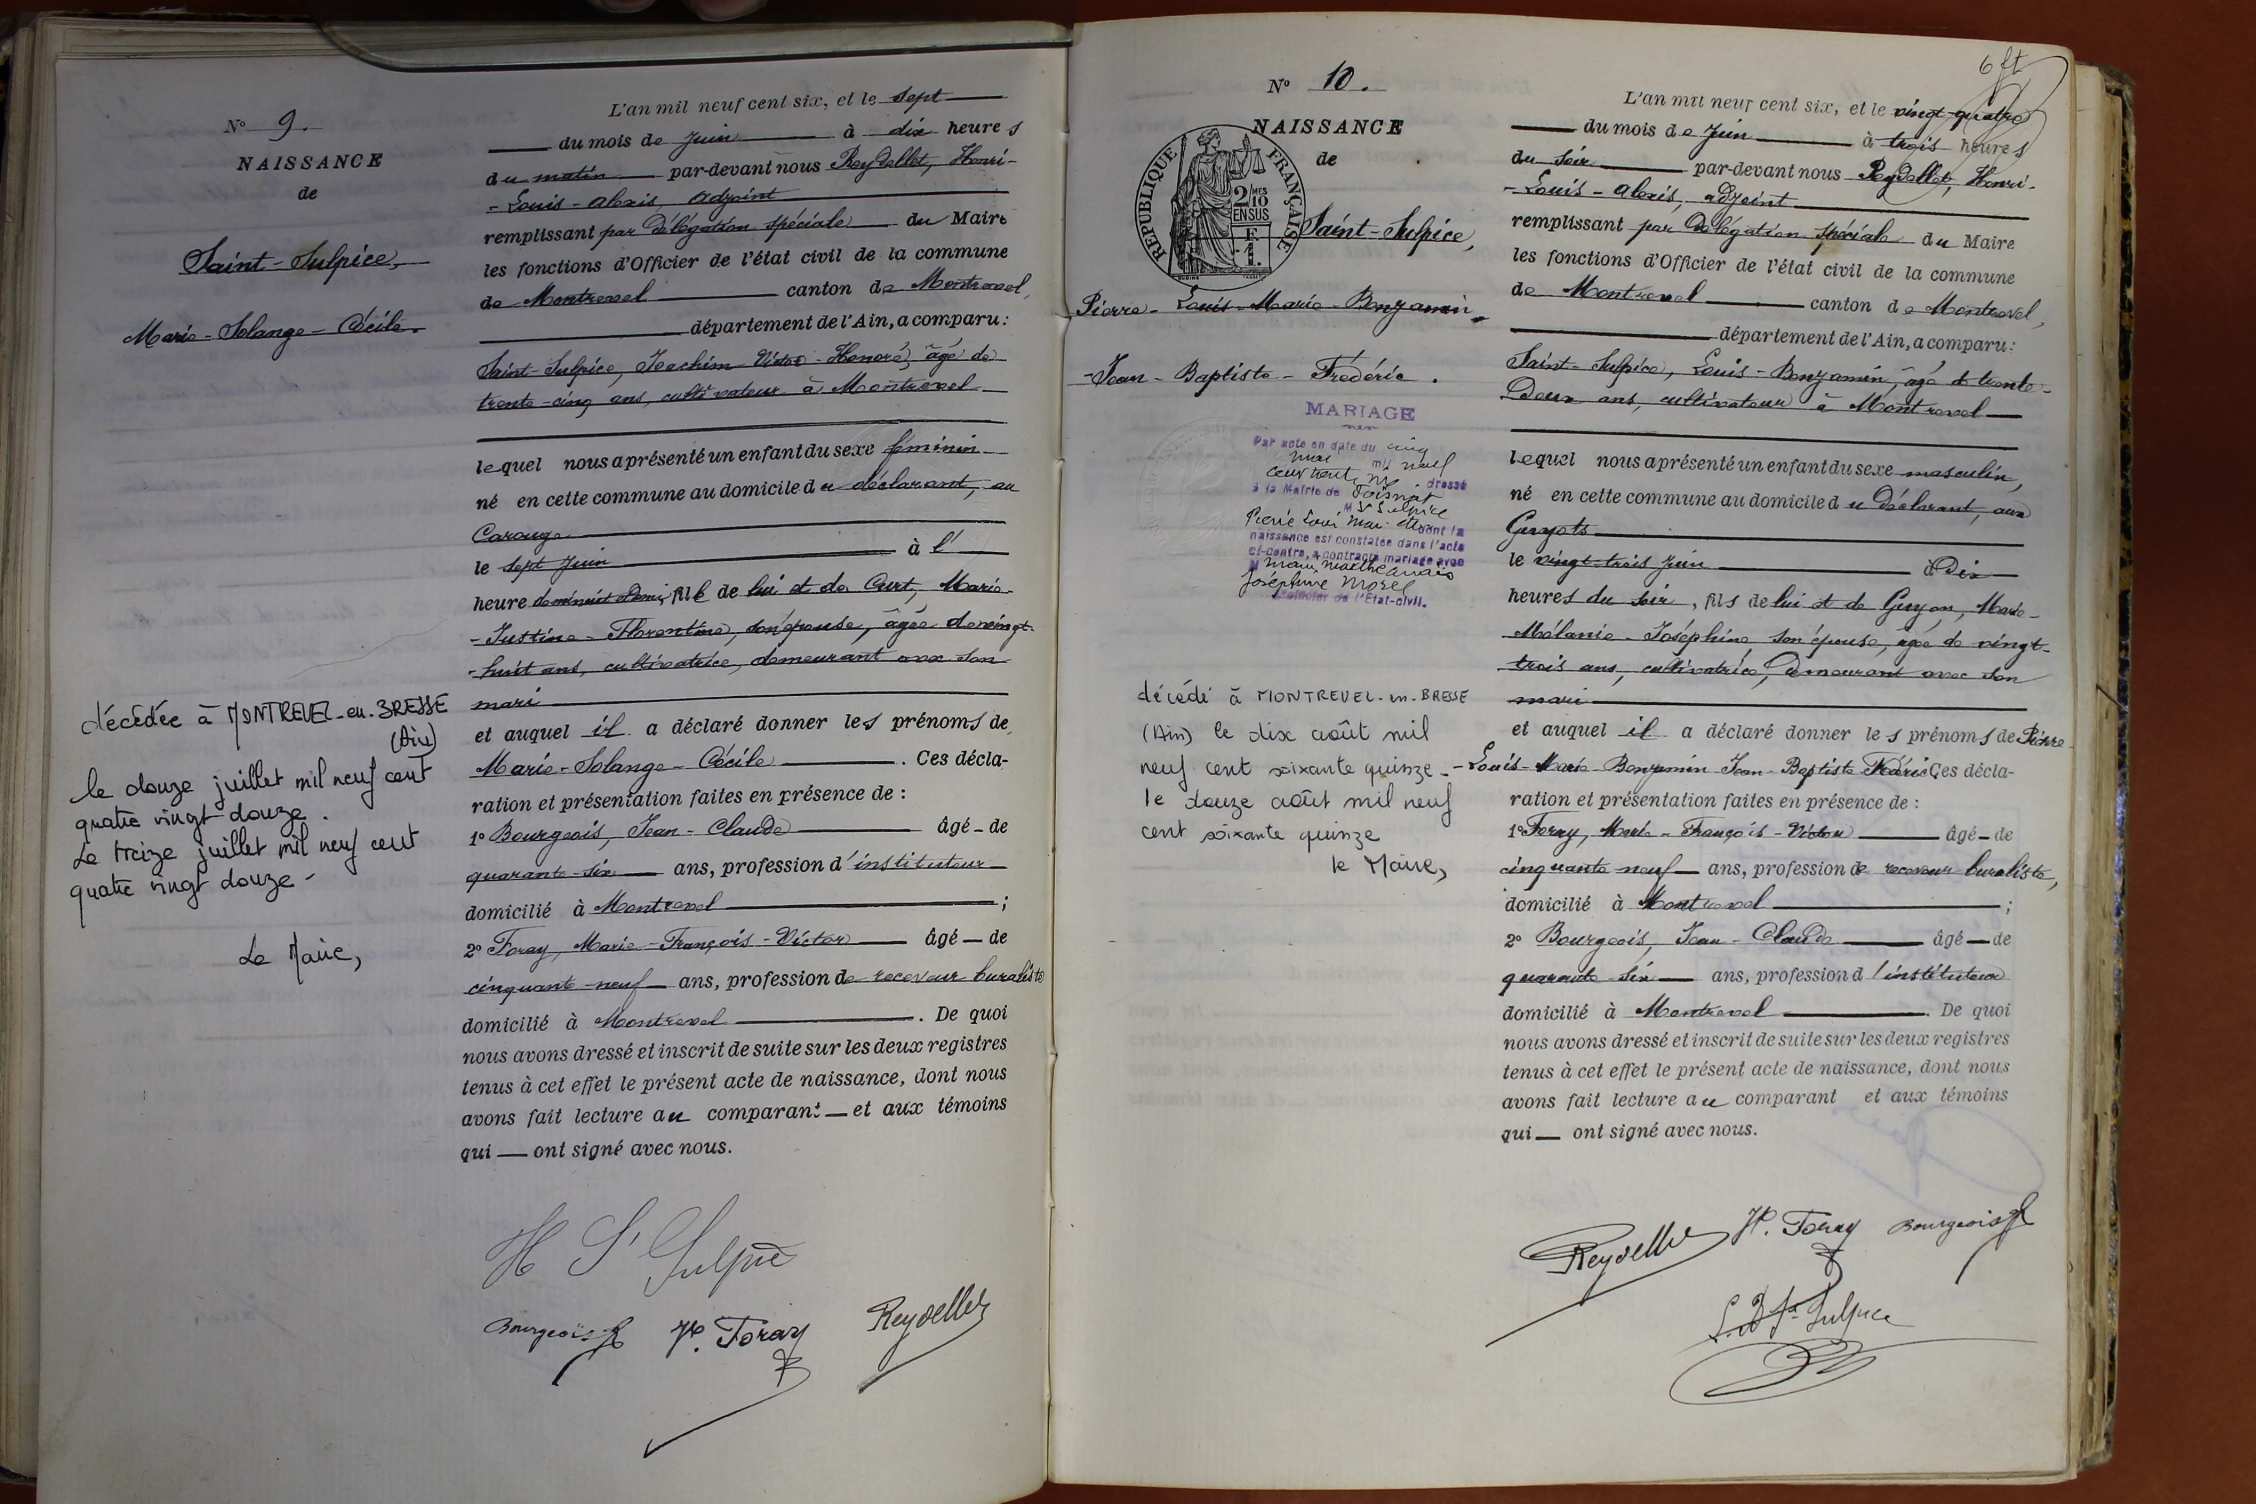 N° 9.
NAISSANCE
de
Saint-Sulpice,
Marie-Solange-Cécile.
décédée à MONTREVEL-en-BRESSE
(Ain)
le douze juillet mil neuf cent
quatre vingt douze.
Le treize juillet mil neuf cent
quatre vingt douze -
Le Maire,
L'an mil neuf cent six, et le sept
du mois de juin à dix heures
du matin par-devant nous Reydellet, Henri-
-Louis-Alexis, adjoint
remplissant par délégation spéciale du Maire
les fonctions d'Officier de l'état civil de la commune
de Montrevel canton de Montrevel,
département de l'Ain, a comparu:
Saint-Sulpice, Joachim-Victor-Honoré, âgé de
trente-cinq ans, cultivateur à Montrevel
lequel nous a présenté un enfant du sexe féminin
né en cette commune au domicile du déclarant, au
Carouge
le sept juin à l'
heure de minuit demi, fille de lui et de Curt, Marie-
-Justine-Florentine, son épouse, âgée de vingt-
-huit ans, cultivatrice, demeurant avec son
mari
et auquel il a déclaré donner les prénoms de
Marie-Solange-Cécile. Ces décla-
ration et présentation faites en présence de :
1° Bourgeois, Jean-Claude âgé-de
quarante-six ans, profession d'instituteur
domicilié à Montrevel ;
2° Foray, Marie-François-Victor âgé-de
cinquante-neuf ans, profession de receveur buraliste
domicilié à Montrevel. De quoi
nous avons dressé et inscrit de suite sur les deux registres
tenus à cet effet le présent acte de naissance, dont nous
avons fait lecture au comparant et aux témoins
qui ont signé avec nous.
H St Sulpice
Bourgeois V. Foray Reydellet
6 ft
N° 10.
NAISSANCE
de
RÉPUBLIQUE FRANÇAISE
2/10
EN SUS
F.
1.
Saint-Sulpice,
Pierre-Louis-Marie-Benjamin-
-Jean-Baptiste-Frédéric.
MARIAGE
Par acte en date du cinq
mai mil neuf
cent trente dressé
à la Mairie de Foissiat
M St Sulpice
Pierre Louis Marie dont la
naissance est constatée dans l'acte
ci-contre, a contracté mariage avec
M Marie Marthe Anaïs
Joséphine Morel
L'officier de l'Etat-civil.
décédé à MONTREVEL-en-BRESSE
(Ain) le dix août mil
neuf cent soixante quinze -
le douze août mil neuf
cent soixante quinze
le Maire,
L'an mil neuf cent six, et le vingt-quatre
du mois de juin à trois heures
du soir par-devant nous Reydellet, Henri-
-Louis-Alexis, adjoint
remplissant par délégation spéciale du Maire
les fonctions d'Officier de l'état civil de la commune
de Montrevel canton de Montrevel,
département de l'Ain, a comparu:
Saint-Sulpice, Louis-Benjamin, âgé de trente-
deux ans, cultivateur à Montrevel
lequel nous a présenté un enfant du sexe masculin,
né en cette commune au domicile du déclarant, aux
Guyots
le vingt-trois juin à dix
heures du soir, fils de lui et de Guyon, Marie-
Mélanie-Joséphine, son épouse, âgée de vingt-
trois ans, cultivatrice, demeurant avec son
mari
et auquel il a déclaré donner les prénoms de Pierre-
-Louis-Marie-Benjamin-Jean-Baptiste Frédéric Ces décla-
ration et présentation faites en présence de :
1° Foray, Marie-François-Victor âgé-de
cinquante-neuf ans, profession de receveur buraliste,
domicilié à Montrevel ;
2° Bourgeois, Jean-Claude âgé-de
quarante-six ans, profession d'instituteur
domicilié à Montrevel. De quoi
nous avons dressé et inscrit de suite sur les deux registres
tenus à cet effet le présent acte de naissance, dont nous
avons fait lecture au comparant et aux témoins
qui ont signé avec nous.
Reydellet V. Foray Bourgeois
L. B St Sulpice